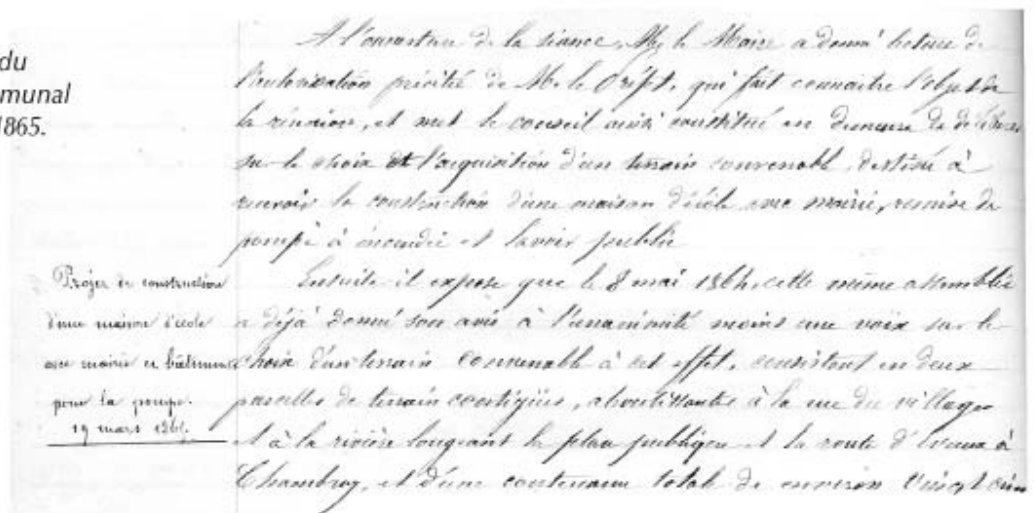 du
munal
1865.
A l'ouverture de la séance, M. le Maire a donné lecture de
l'autorisation précitée de M. le Préfet, qui fait connaître l'objet de
la réunion, et met le conseil ainsi constitué en demeure de délibérer
sur le choix et l'acquisition d'un terrain convenable, destiné à
recevoir la construction d'une maison d'école avec mairie, remise de
pompe à incendie et lavoir public
Projet de construction
d'une maison d'école
avec mairie et bâtiment
pour la pompe.
19 mars 1865.
Ensuite il expose que le 8 mai 1864, cette même assemblée
a déjà donné son avis à l'unanimité moins une voix sur le
choix d'un terrain convenable à cet effet, consistant en deux
parcelles de terrain contigües, aboutissantes à la rue du village
et à la rivière longeant la place publique et la route d'
à
Chambrey, et d'une contenance totale de environ vingt cinq